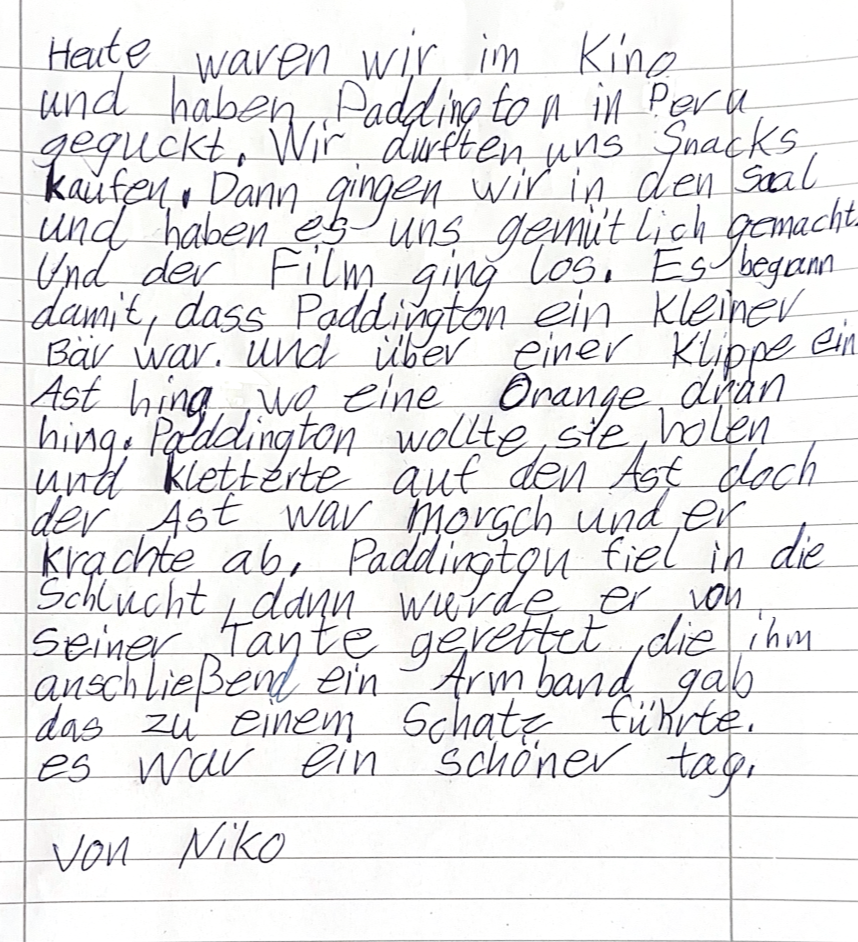 Heute waren wir im Kino
und haben Paddington in Peru
geguckt. Wir durften uns Snacks
kaufen. Dann gingen wir in den Saal
und haben es uns gemütlich gemacht.
Und der Film ging los. Es begann
damit, dass Paddington ein kleiner
Bär war. und über einer Klippe ein
Ast hing wo eine Orange dran
hing. Paddington wollte sie holen
und kletterte auf den Ast doch
der Ast war morsch und er
krachte ab. Paddington fiel in die
Schlucht, dann wurde er von
seiner Tante gerettet, die ihm
anschließend ein Armband gab
das zu einem Schatz führte.
es war ein schöner tag.
von Niko